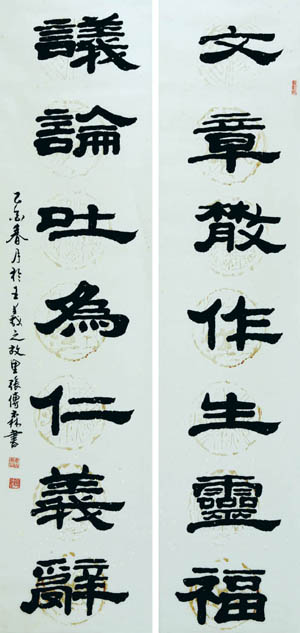 文章散作生靈福
議論吐為仁義辭
乙酉春月於王羲之故里張傳森書